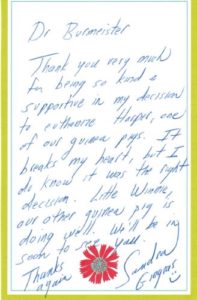 Dr Burmeister
Thank you very much
for being so kind &
supportive in my decision
to euthanize Harper, one
of our guinea pigs. It
breaks my heart, but I
do know it was the right
decision. Little Winnie,
our other guinea pig is
doing well. We'll be in
soon to see you.
Thanks
again
Sandra